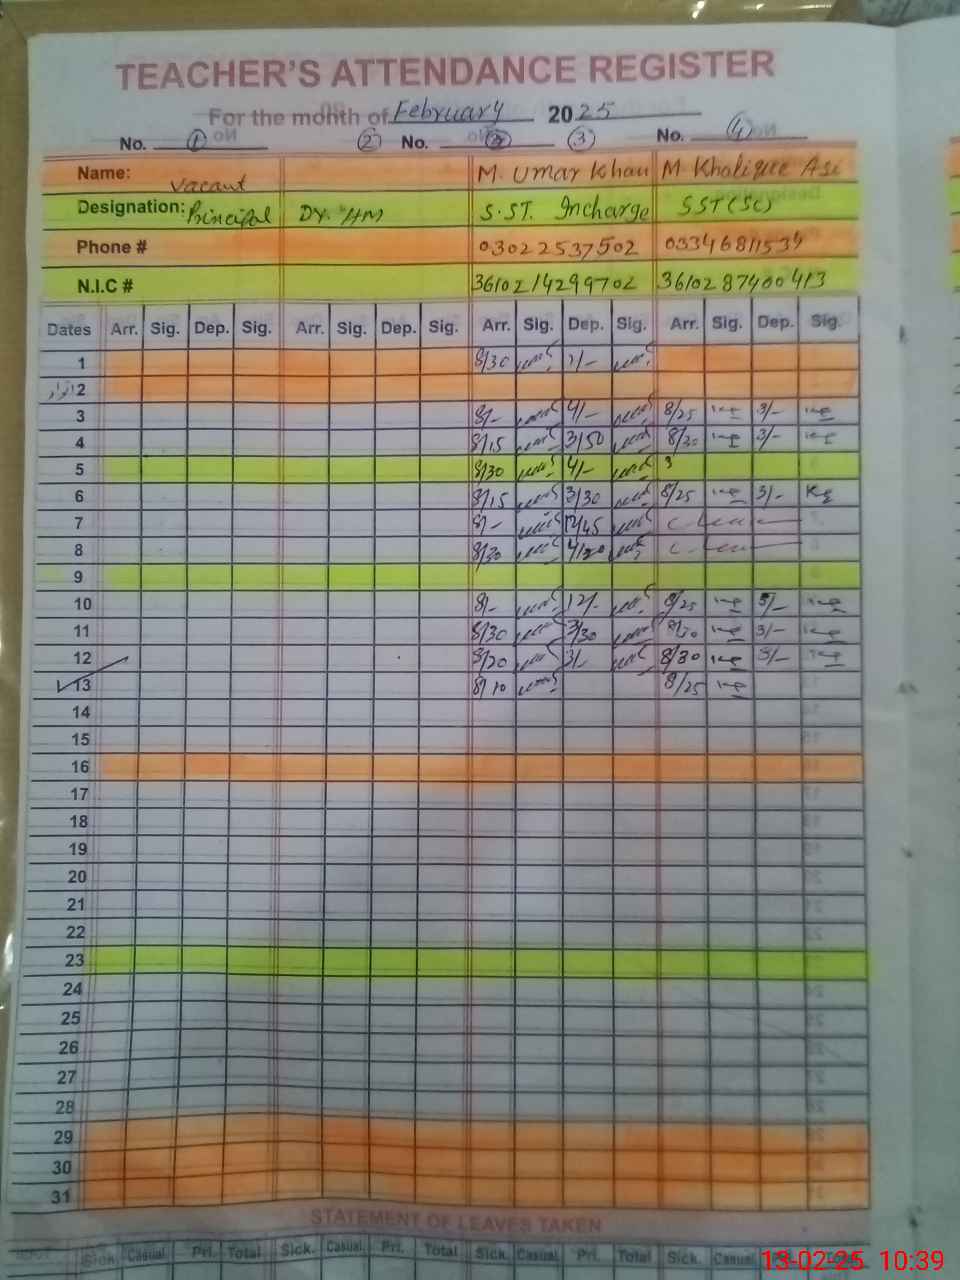 TEACHER'S ATTENDANCE REGISTER
For the month of February 2025
No. 1 2 No. 3 No. 4
Name: Vacant M. Umar Khan M Khalique Asi
Designation: Principal Dy. HM S.ST. Incharge SST(SC)
Phone # 03022537502 03346811534
N.I.C # 3610214299702 3610287400413
Dates Arr. Sig. Dep. Sig. Arr. Sig. Dep. Sig. Arr. Sig. Dep. Sig. Arr. Sig. Dep. Sig.
1 8/30 1/-
اتوار 2
3 8/- 4/- 8/25 3/-
4 8/15 3/50 8/30 3/-
5 8/30 4/-
6 8/15 3/30 8/25 3/-
7 8/- 12/45
8 8/30
9
10 8/- 12/- 8/25
11 8/30 3/30 8/30 3/-
12 8/20 3/- 8/30 3/-
13 8/10 8/25
14
15
16
17
18
19
20
21
22
23
24
25
26
27
28
29
30
31
STATEMENT OF LEAVES TAKEN
Sick. Casual Pri. Total Sick. Casual Pri. Total Sick. Casual Pri. Total Sick. Casual Total
13-02-25 10:39